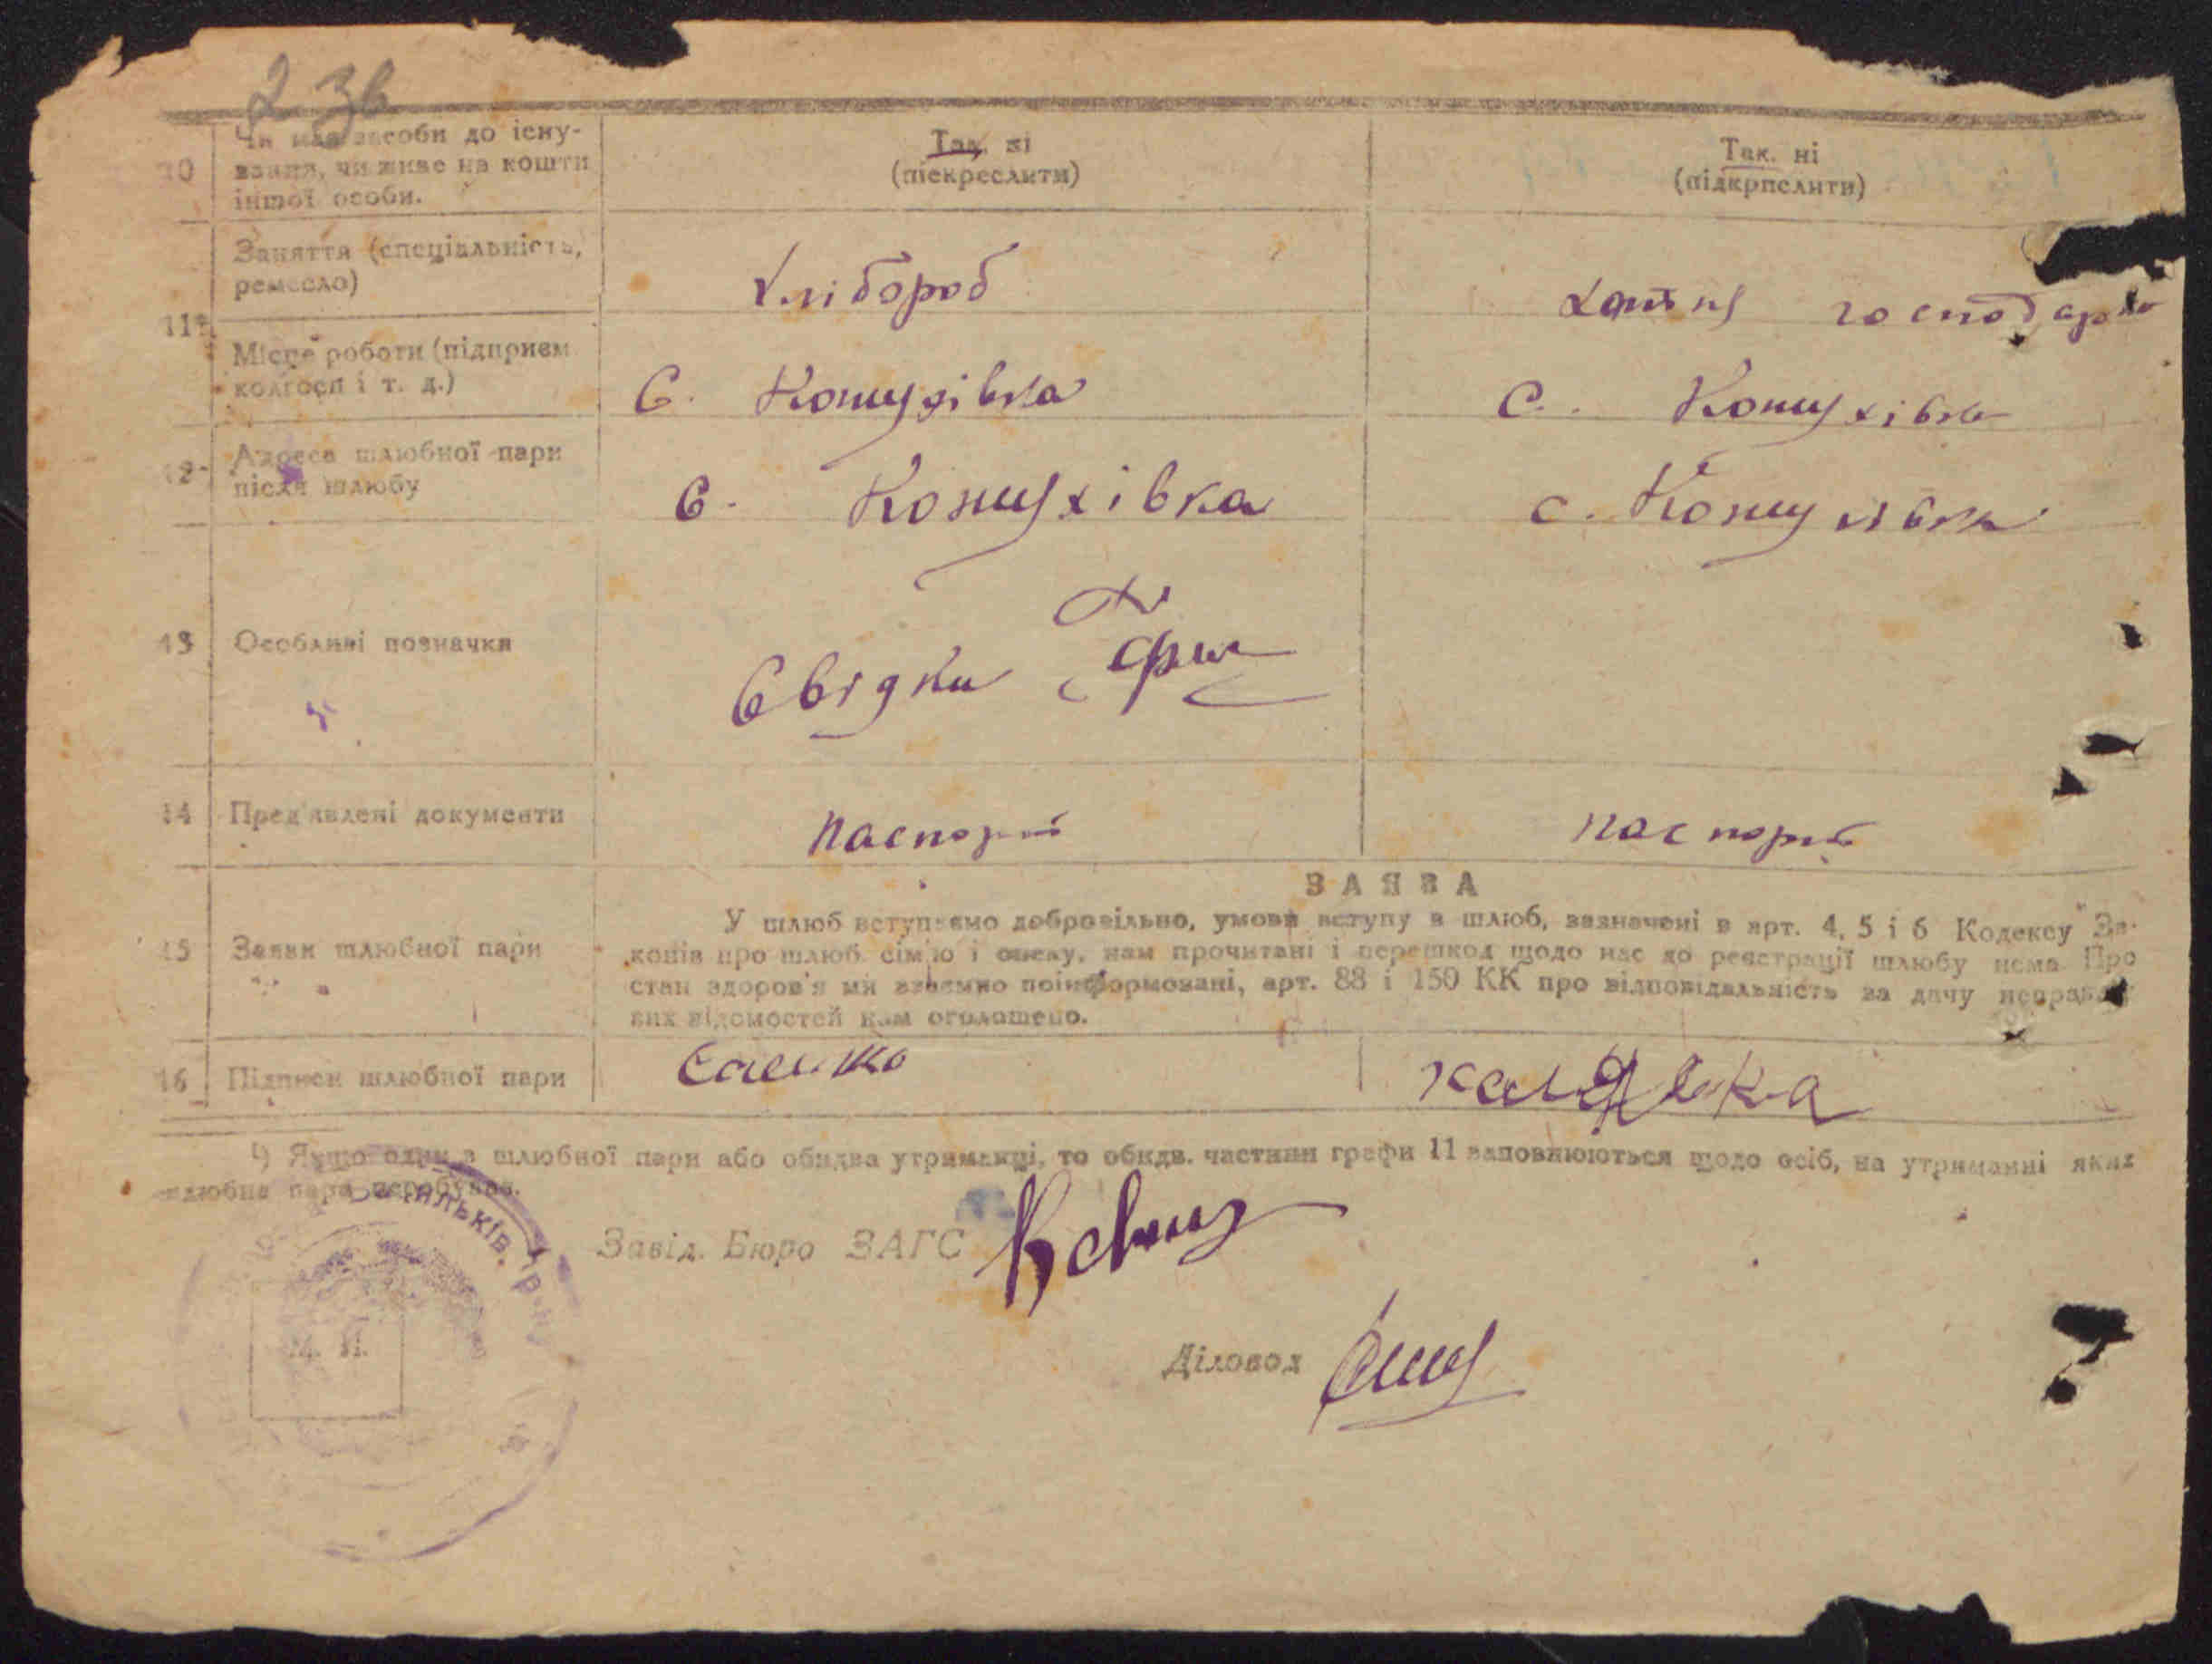 2 зв
10 Чи має засоби до існу- Так. ні Так. ні
вання, чи живе на кошти (піскреслити) (підкрпслити)
іншої особи.
Заняття (спеціальність, Хлібороб Хатня господарка
ремесло)
11
Місце роботи (підприєм С. Кошухівка С. Кошухівка
колгосп і т. д.)
12 Адреса шлюбної пари С. Кошухівка С. Кошухівка
після шлюбу
13 Особливі позначки Свідки
14 Пред'явлені документи паспорт паспорт
ЗАЯВА
У шлюб вступаємо добровільно, умови вступу в шлюб, зазначені в арт. 4, 5 і 6 Кодексу За-
15 Заяви шлюбної пари конів про шлюб. сім'ю і опеку, нам прочитані і перешкод щодо нас до реєстрації шлюбу нема Про
стан здоров'я ми взаємно поінформовані, арт. 88 і 150 КК про відповідальність за дачу неправ
вих відомостей нам оголошено.
16 Підписи шлюбної пари
1) Якщо один з шлюбної пари або обидва утриманці, то обидв. частини графи 11 заповнюються щодо осіб, на утриманні яких
шлюбна пара перебуває.
Завід. Бюро ЗАГС
М. П.
Діловод